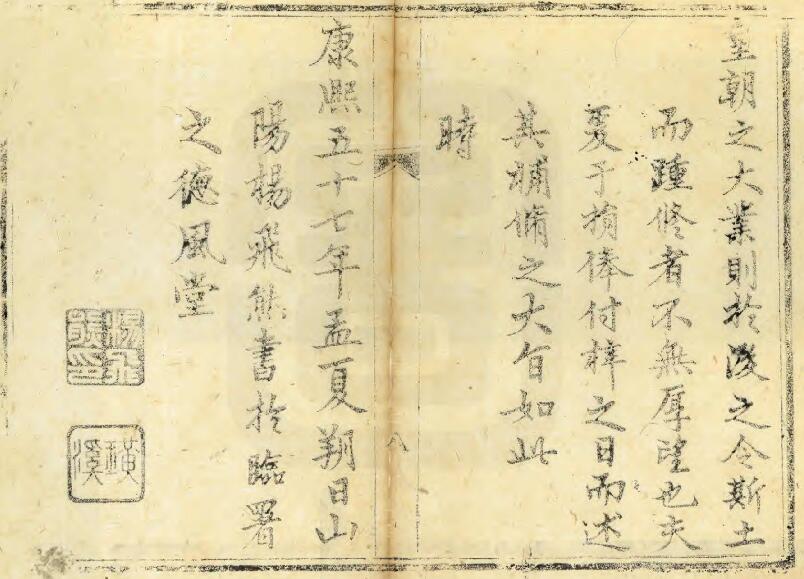 皇朝之大業則於後之令斯土
而踵修者不無厚望也夫
爰于捐俸付梓之日而述
其補脩之大旨如此
時
八
康熙五十七年孟夏朔日山
陽楊飛熊書於臨署
之德風堂
楊飛熊印
璜溪